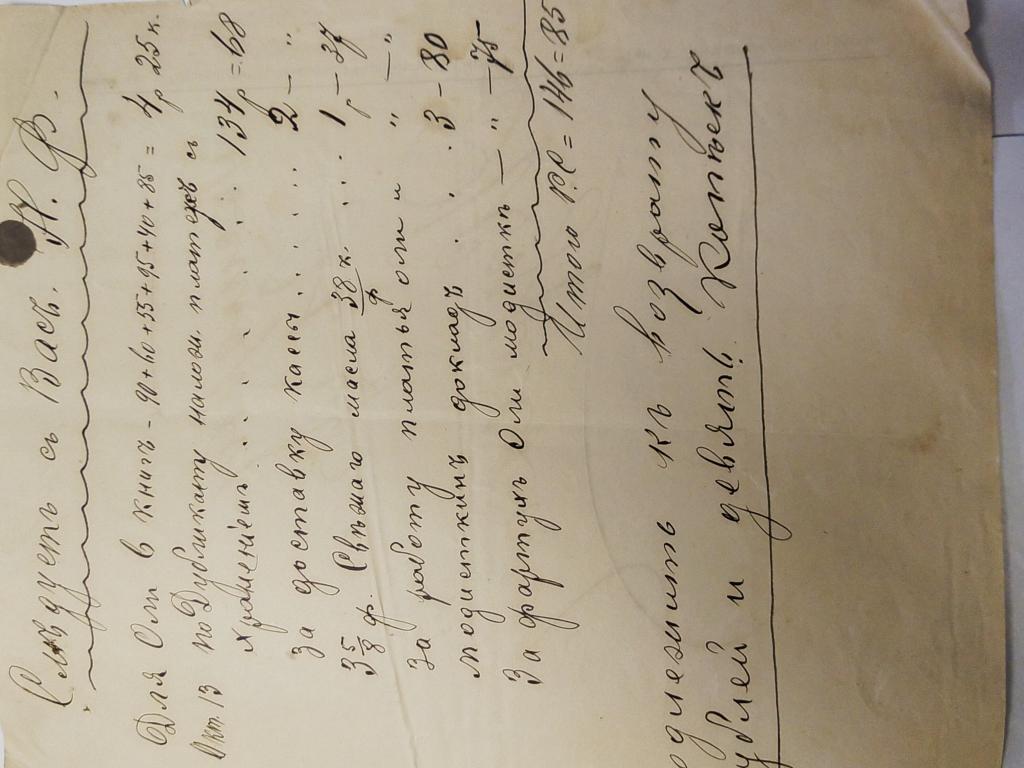 Слѣдуетъ съ Васъ. Н. В.
Для Оли 6 книгъ - 90+60+55+95+40+85 = 4р 25к.
Окт. 13 по Дубликату налож. платежъ съ
храненіемъ . . . . . . 134р = 68
За доставку кассы . . . . . 2 — "
3 5/8 ф. Свѣжаго масла 38 к./ф . . . 1р — 37
За работу платья Оли " " — "
модисткинъ докладъ . . . 3 - 80
За фартукъ Оли модисткѣ — " — 75
Итого р.с = 146 = 85
длежитъ къ возврату
ублей и девять! Копѣекъ